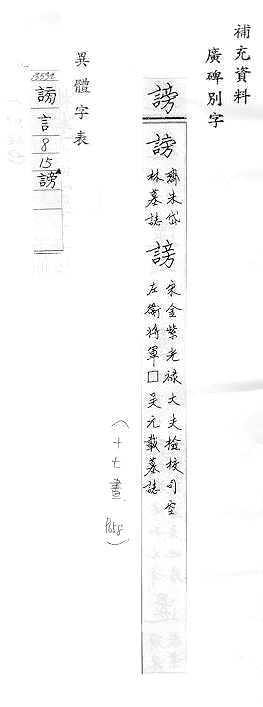 補充資料
廣碑別字
謗
謗 齊朱岱林墓誌
謗 宋金紫光祿大夫檢校司空左衛將軍□吳元載墓誌
(十七畫 P658)
異體字表
謗
言
8
15
謗